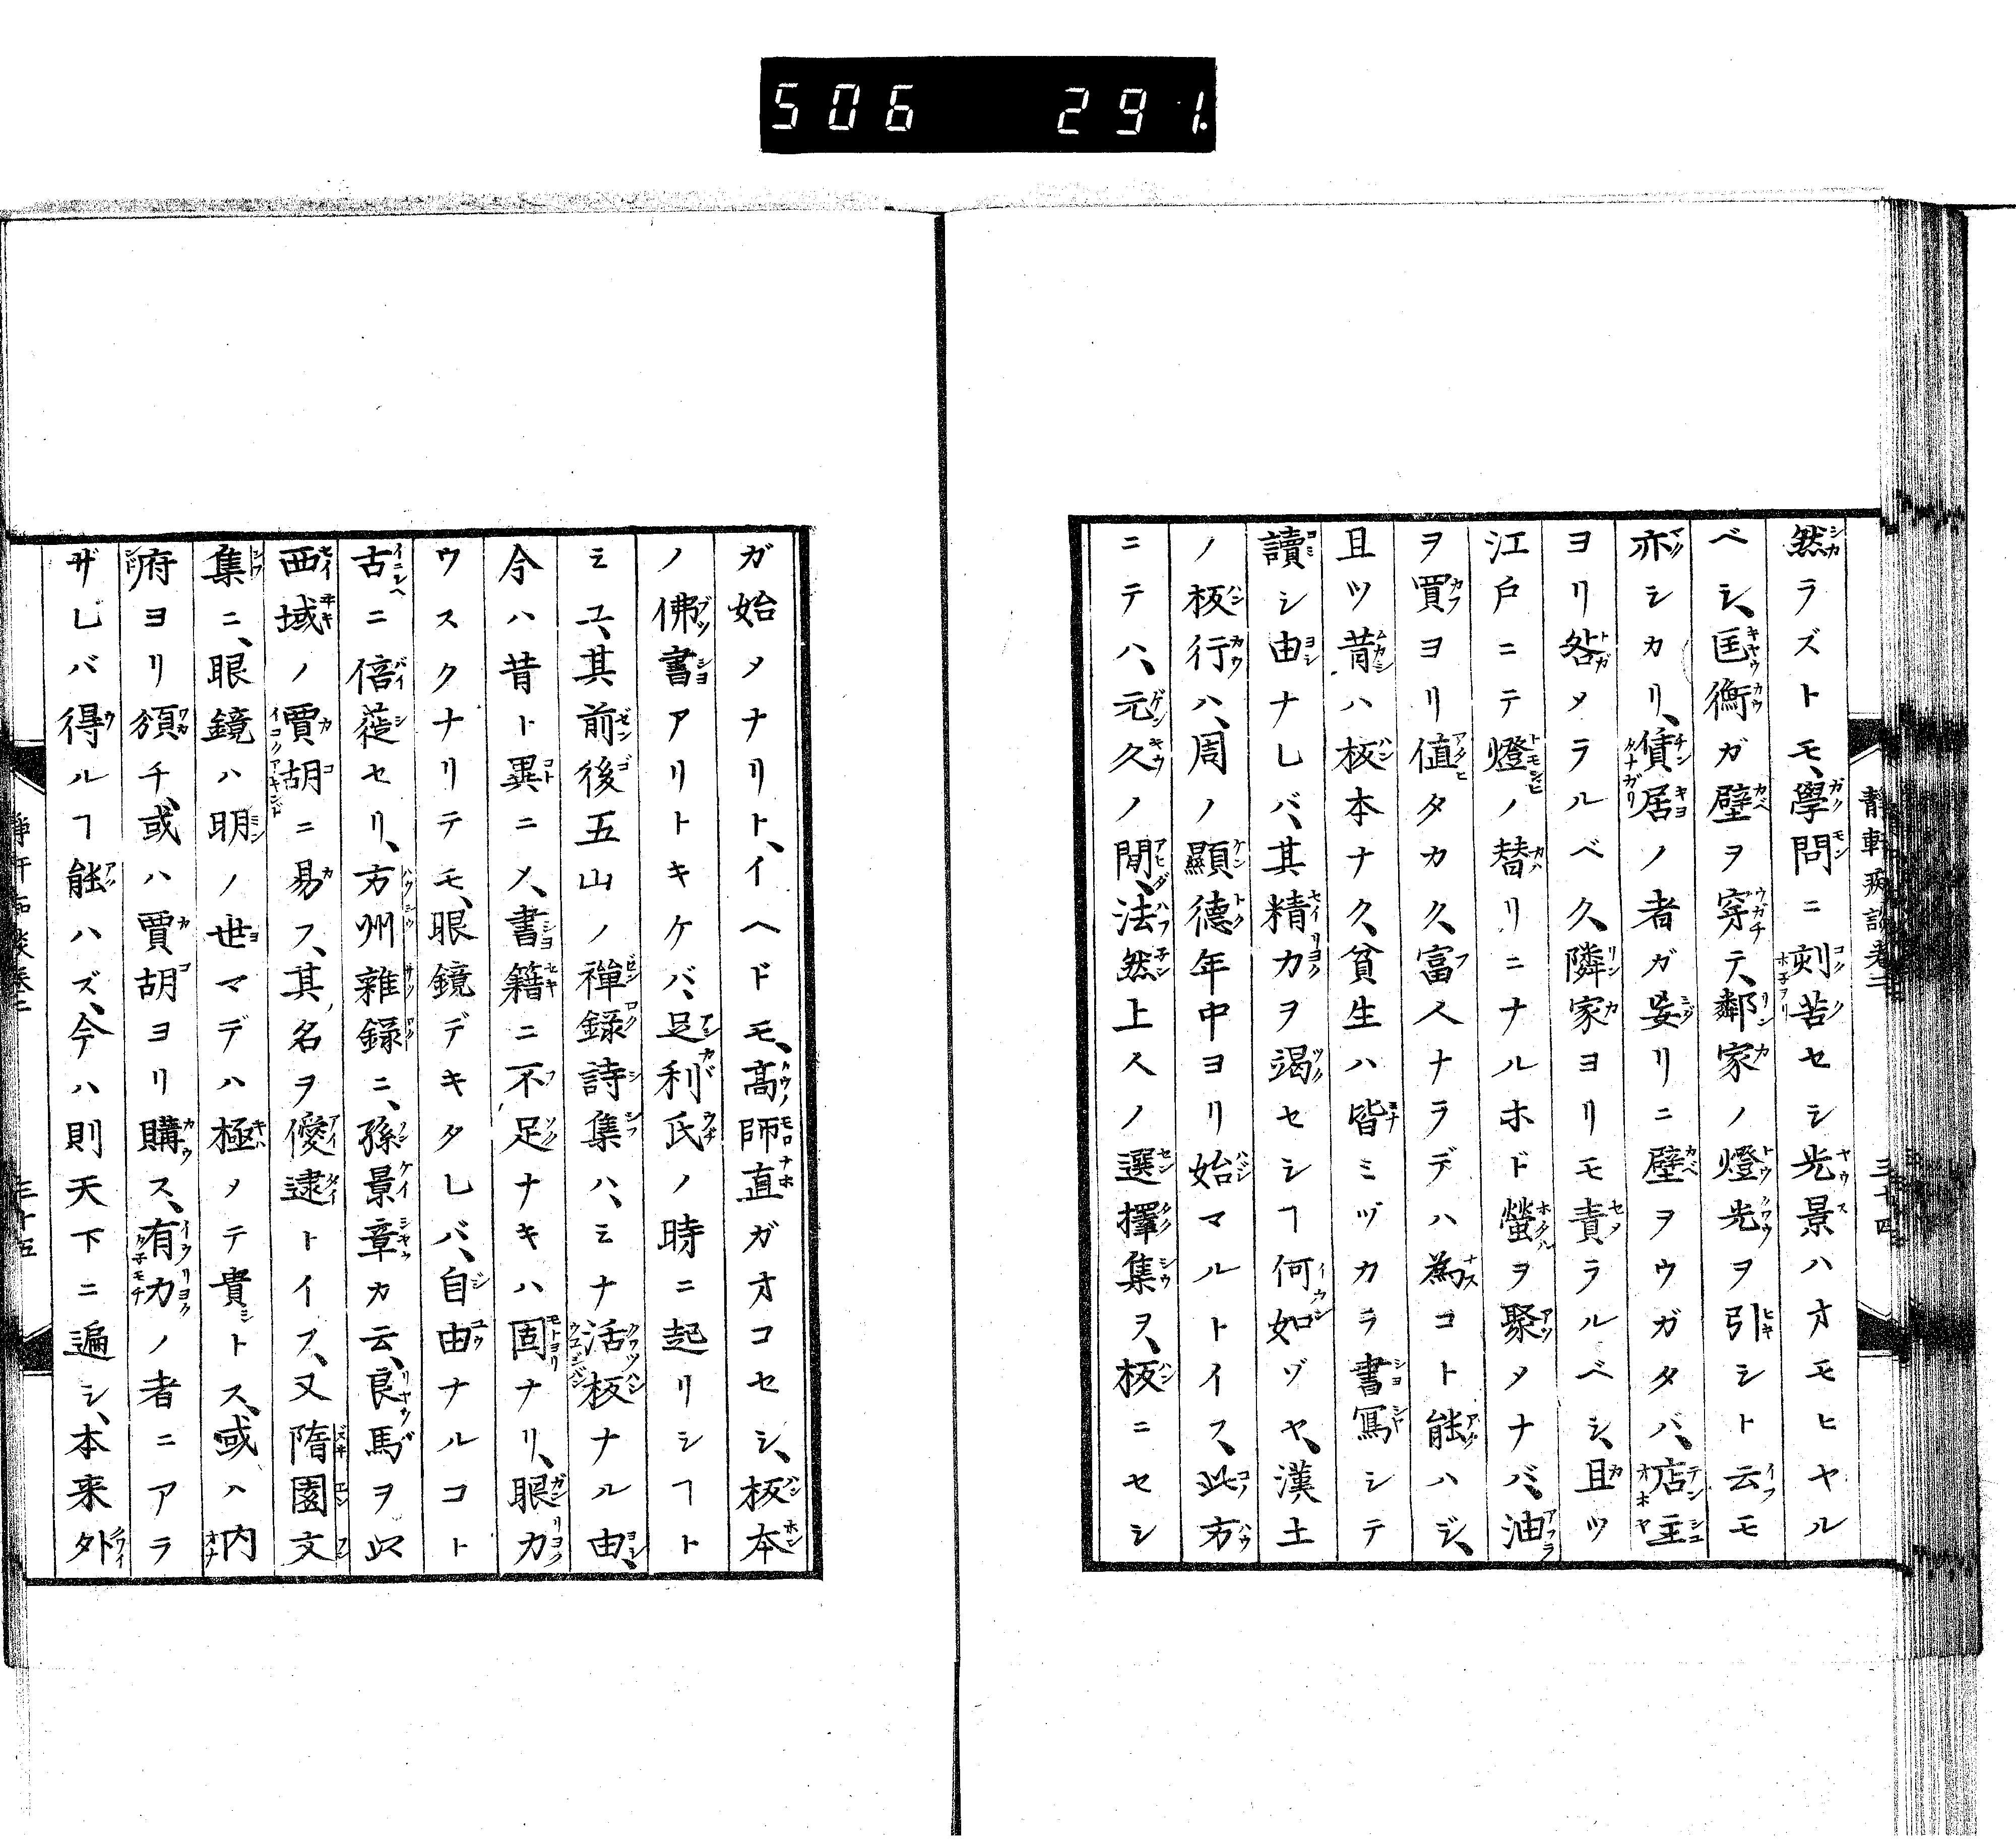 506 291.
然ラズトモ、學問ニ刻苦セシ光景ハオモヒヤル
ベシ、匡衡ガ壁ヲ穿テ、鄰家ノ燈光ヲ引シト云モ
亦シカリ、賃居ノ者ガ妄リニ壁ヲウガタバ、店主
ヨリ咎メラルベク、隣家ヨリモ責ラルベシ、且ツ
江戸ニテ燈ノ替リニナルホド螢ヲ聚メナバ、油
ヲ買ヨリ値タカク、富人ナラデハ為コト能ハジ、
且ツ昔ハ板本ナク、貧生ハ皆ミヅカラ書寫シテ
讀シ由ナレバ、其精力ヲ竭セシヿ何如ゾヤ、漢土
ノ板行ハ、周ノ顯德年中ヨリ始マルトイス、此方
ニテハ、元久ノ間、法然上人ノ選擇集ヲ、板ニセシ
ガ始メナリト、イヘドモ、高師直ガオコセシ、板本
ノ佛書アリトキケバ、足利氏ノ時ニ起リシヿト
ミユ、其前後五山ノ禪録詩集ハ、ミナ活板ナル由、
今ハ昔ト異ニメ、書籍ニ不足ナキハ固ナリ、眼力
ウスクナリテモ、眼鏡デキタレバ、自由ナルコト
古ニ倍蓰セリ、方州雜録ニ、孫景章カ云、良馬ヲ以
西域ノ賈胡ニ易ス、其名ヲ僾逮トイス、又隋園文
集ニ、眼鏡ハ明ノ世マデハ極メテ貴トス、或ハ内
府ヨリ頒チ、或ハ賈胡ヨリ購ス、有力ノ者ニアラ
ザレバ得ルヿ能ハズ、今ハ則天下ニ遍シ、本来外